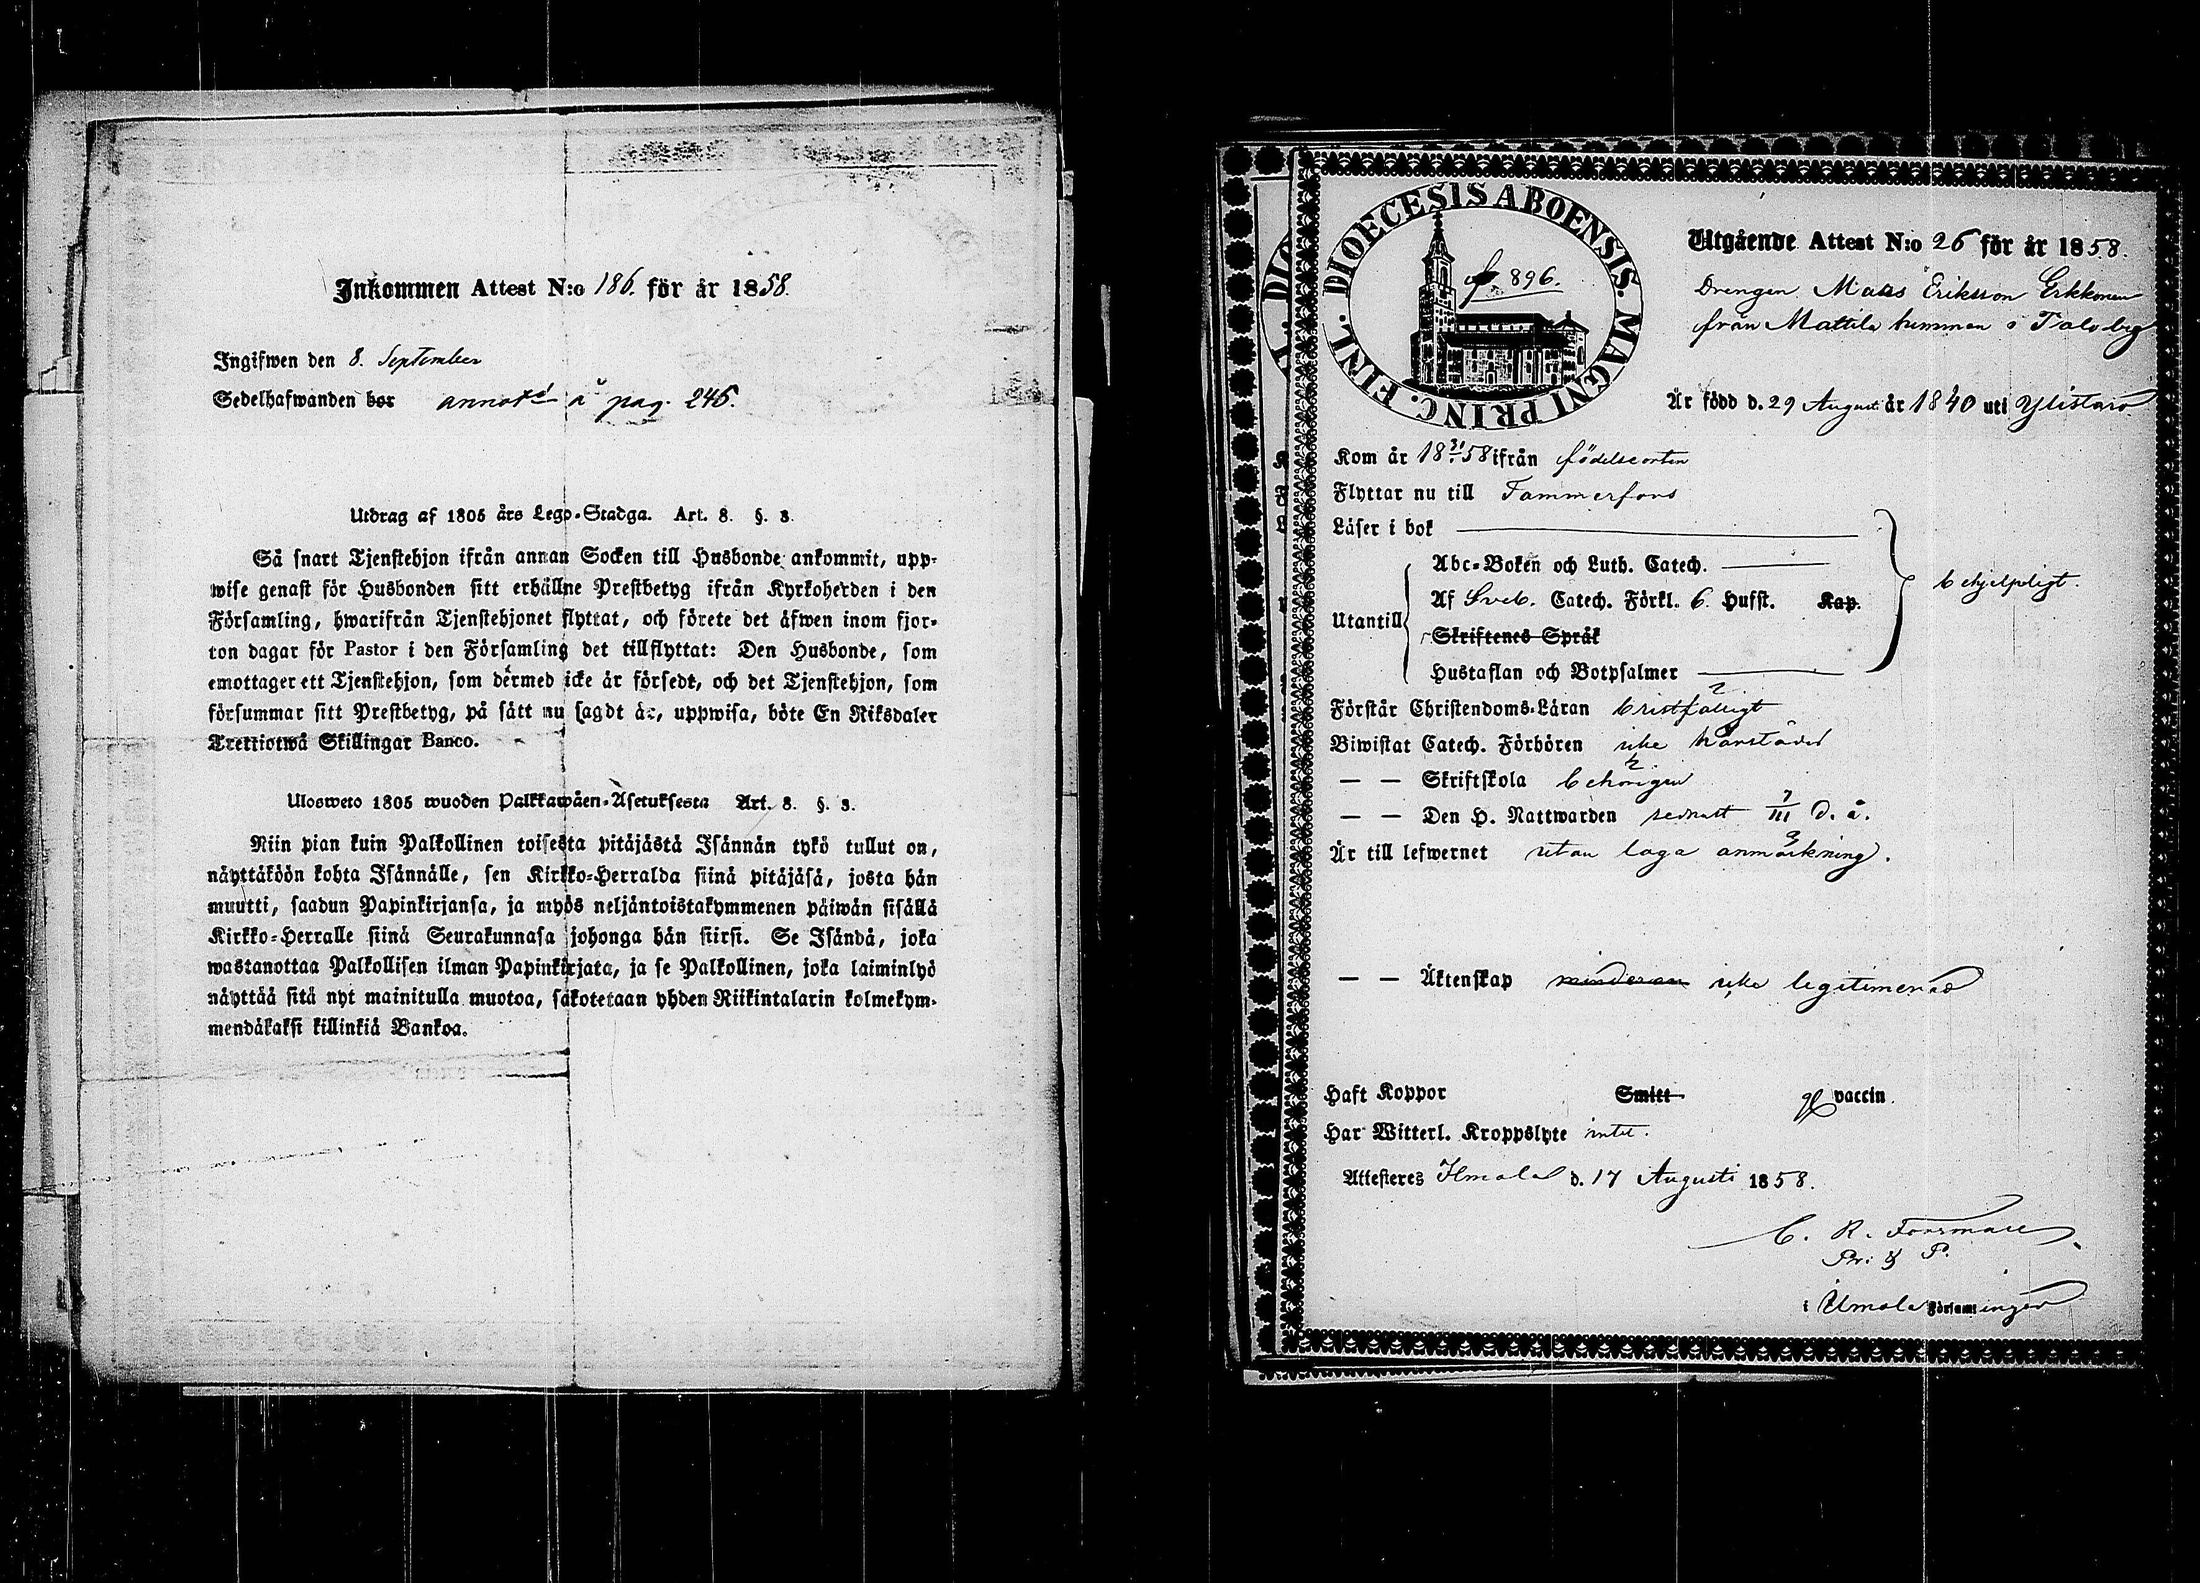 Inkommen Attest N:o 186. för år 1858.
Ingifwen den 8. September
Sedelhafwanden bor annot. å pag. 246.
Utdrag af 1805 års Lego-Stadga. Art. 8. §. 3.
Så snart Tjenstehjon ifrån annan Socken till Husbonde ankommit, upp-
wise genast för Husbonden sitt erhållne Prestbetyg ifrån Kyrkoherden i den
Församling, hwarifrån Tjenstehjonet flyttat, och förete det äfwen inom fjor-
ton dagar för Pastor i den Församling det tillflyttat: Den Husbonde, som
emottager ett Tjenstehjon, som dermed icke är försedt, och det Tjenstehjon, som
försummar sitt Prestbetyg, på sätt nu sagdt är, uppwisa, böte En Riksdaler
Trettiotwå Skillingar Banco.
Ulosweto 1805 wuoden Palkkawäen-Asetuksesta Art. 8. §. 3.
Niin pian kuin Palkollinen toisesta pitäjästä Isännän tykö tullut on,
näyttäköön kohta Isännälle, sen Kirkko-Herralda siinä pitäjäsä, josta hän
muutti, saadun Papinkirjansa, ja myös neljäntoistakymmenen päiwän sisällä
Kirkko-Herralle siinä Seurakunnasa johonga hän siirsi. Se Isändä, joka
wastanottaa Palkollisen ilman Papinkirjata, ja se Palkollinen, joka laiminlyö
näyttää sitä nyt mainitulla muotoa, sakotetaan yhden Riikintalarin kolmekym-
mendäkaksi killinkiä Bankoa.
DIOECESIS ABOENSIS. MAGNI PRINC. FINL.
896.
Utgående Attest N:o 26 för år 1858.
Drengen Mats Eriksson Erkkonen
från Mattila hemman i Taloby
Är född d. 29 Augusti år 1840 uti Ylistaro
Kom år 1858 ifrån födelseorten
Flyttar nu till Tammerfors
Läser i bok
Abc-Boken och Luth. Catech.
Utantill Af Sveb. Catech. Förkl. 6. Hufst. Kap. behjelpligt.
Skriftenes Språk
Hustaflan och Botpsalmer
Förstår Christendoms-Läran bristfälligt
Biwistat Catech. Förhören icke härstädes
— — Skriftskola behörigen
— — Den H. Nattwarden sednast 7/III d. å.
Är till lefwernet utan laga anmärkning.
— — Äktenskap icke legitimerad
Haft Koppor Smitt vaccin.
Har Witterl. Kroppslyte intet.
Attesteres Ilmola d. 17 Augusti 1858.
C. R. Forsman
P.
i Ilmola Församlingen